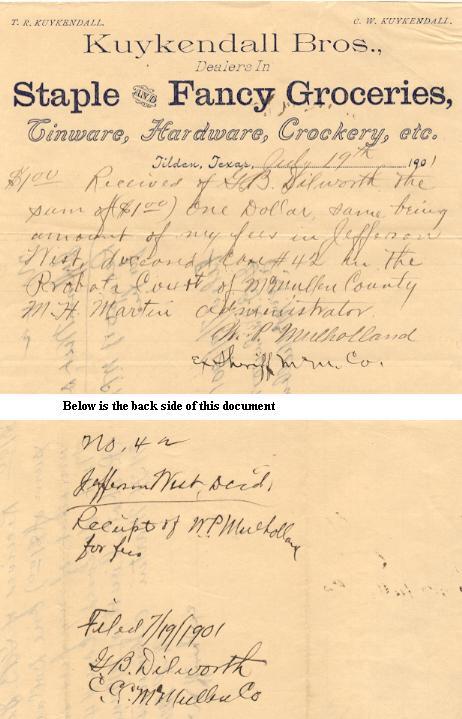 T. R. KUYKENDALL. C. W. KUYKENDALL.
Kuykendall Bros.,
Dealers In
Staple AND Fancy Groceries,
Tinware, Hardware, Crockery, etc.
Tilden, Texas, July 19th 1901
$1.00 Received of G.B. Dilworth the
sum of ($1.00) One Dollar, same being
amount of my fees in Jefferson
West, Deceased, Case #42 in the
Probate Court of McMullen County
M.H. Martin administrator.
W. P. Mulholland
ex Sheriff McM. Co.
Below is the back side of this document
No. 42
Jefferson West, Decd.
Receipt of W.P. Mulholland
for fees
Filed 7/19/1901
G.B. Dilworth
C.C. McMullen Co